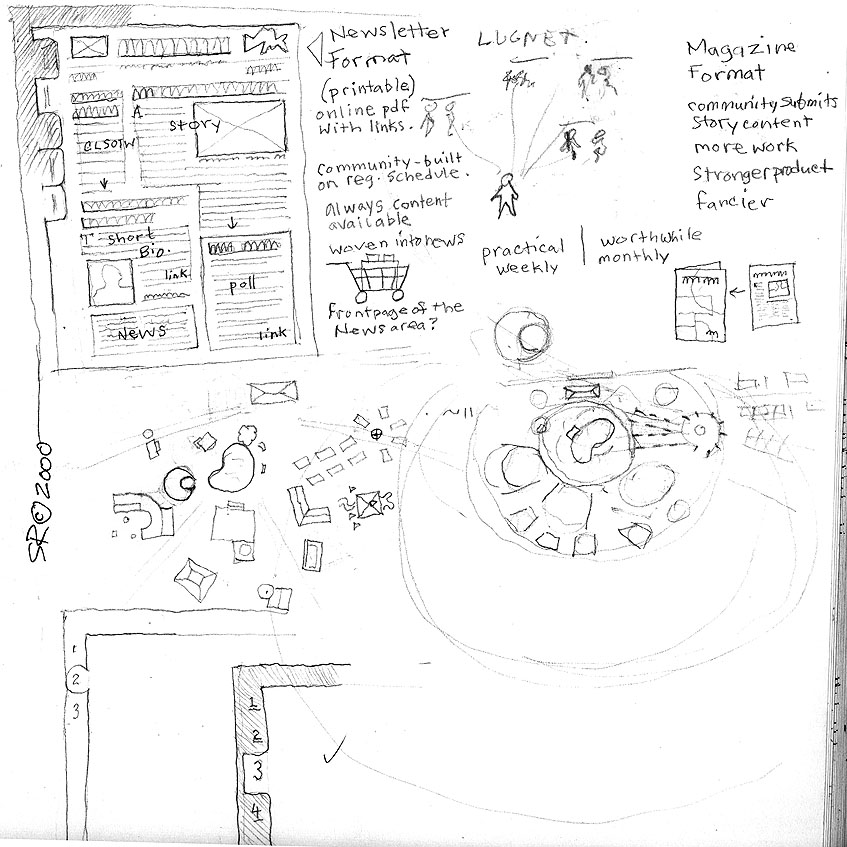 Newsletter
Format
(printable)
online pdf
with links.
community-built
on reg. schedule.
Always content
available
woven into news
Frontpage of the
News area?
LUGNET.
practical
weekly
worthwhile
monthly
Magazine
Format
community submits
story content
more work
Stronger product
fancier
A.
story
CLSOTW
T- short
Bio.
link
poll
News
link
SR © 2000
1
2
3
1
2
3
4